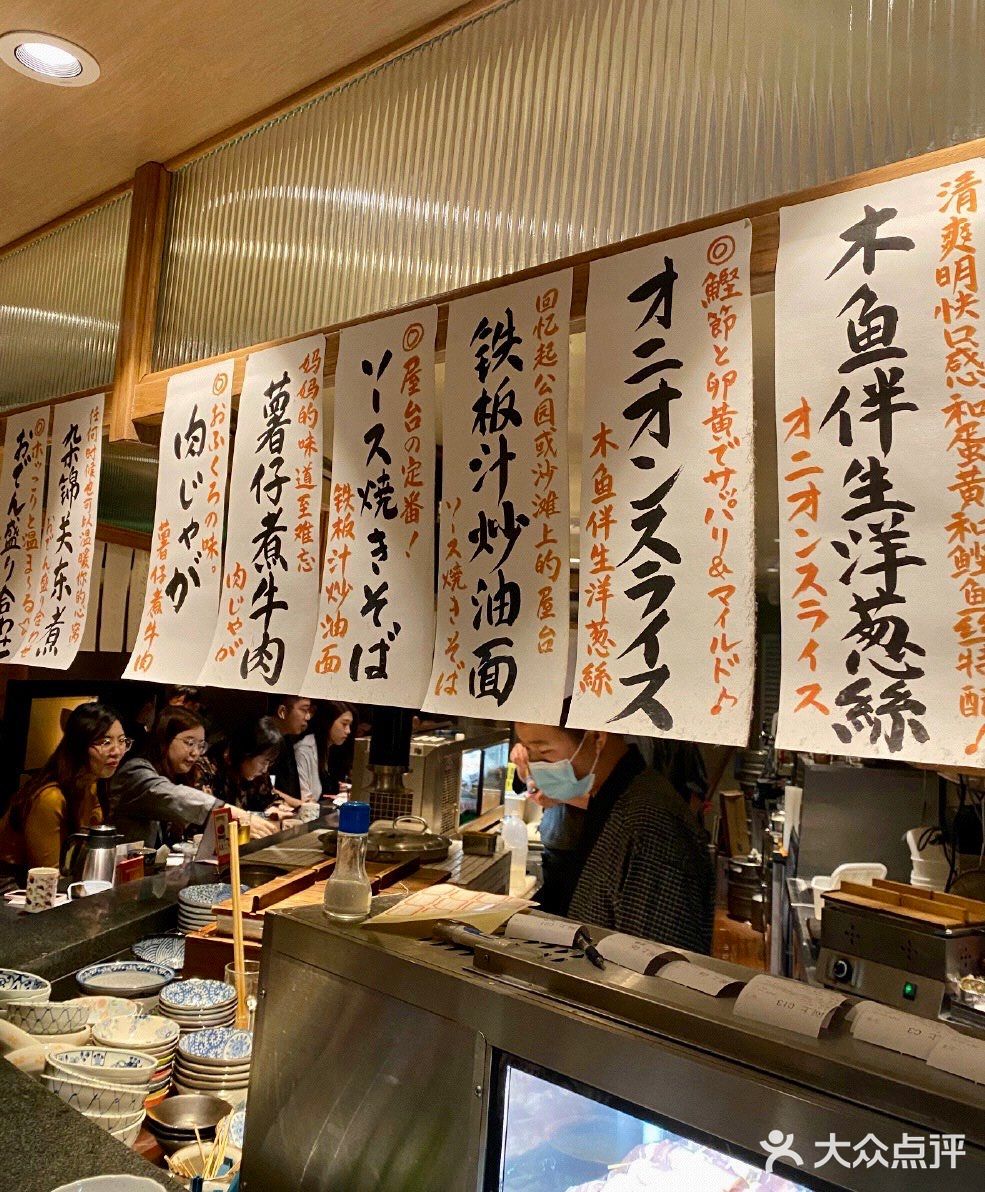 清爽明快口感和蛋黄和鲣鱼丝特
木鱼伴生洋葱絲
オニオンスライス
◎鰹節と卵黄でサパリ&マイルド♪
オニオンスライス
木鱼伴生洋葱絲
回忆起公园或沙滩上的屋台
铁板汁炒油面
ソース焼きそば
◎屋台の定番!
ソース焼きそば
铁板汁炒油面
妈妈的味道至难忘
薯仔煮牛肉
肉じゃが
◎おふくろの味。
肉じゃが
薯仔煮牛肉
任何时候也可以温暖你的心窝
杂锦关东煮
おでん盛り合わせ
おでん盛り合わせ
大众点评